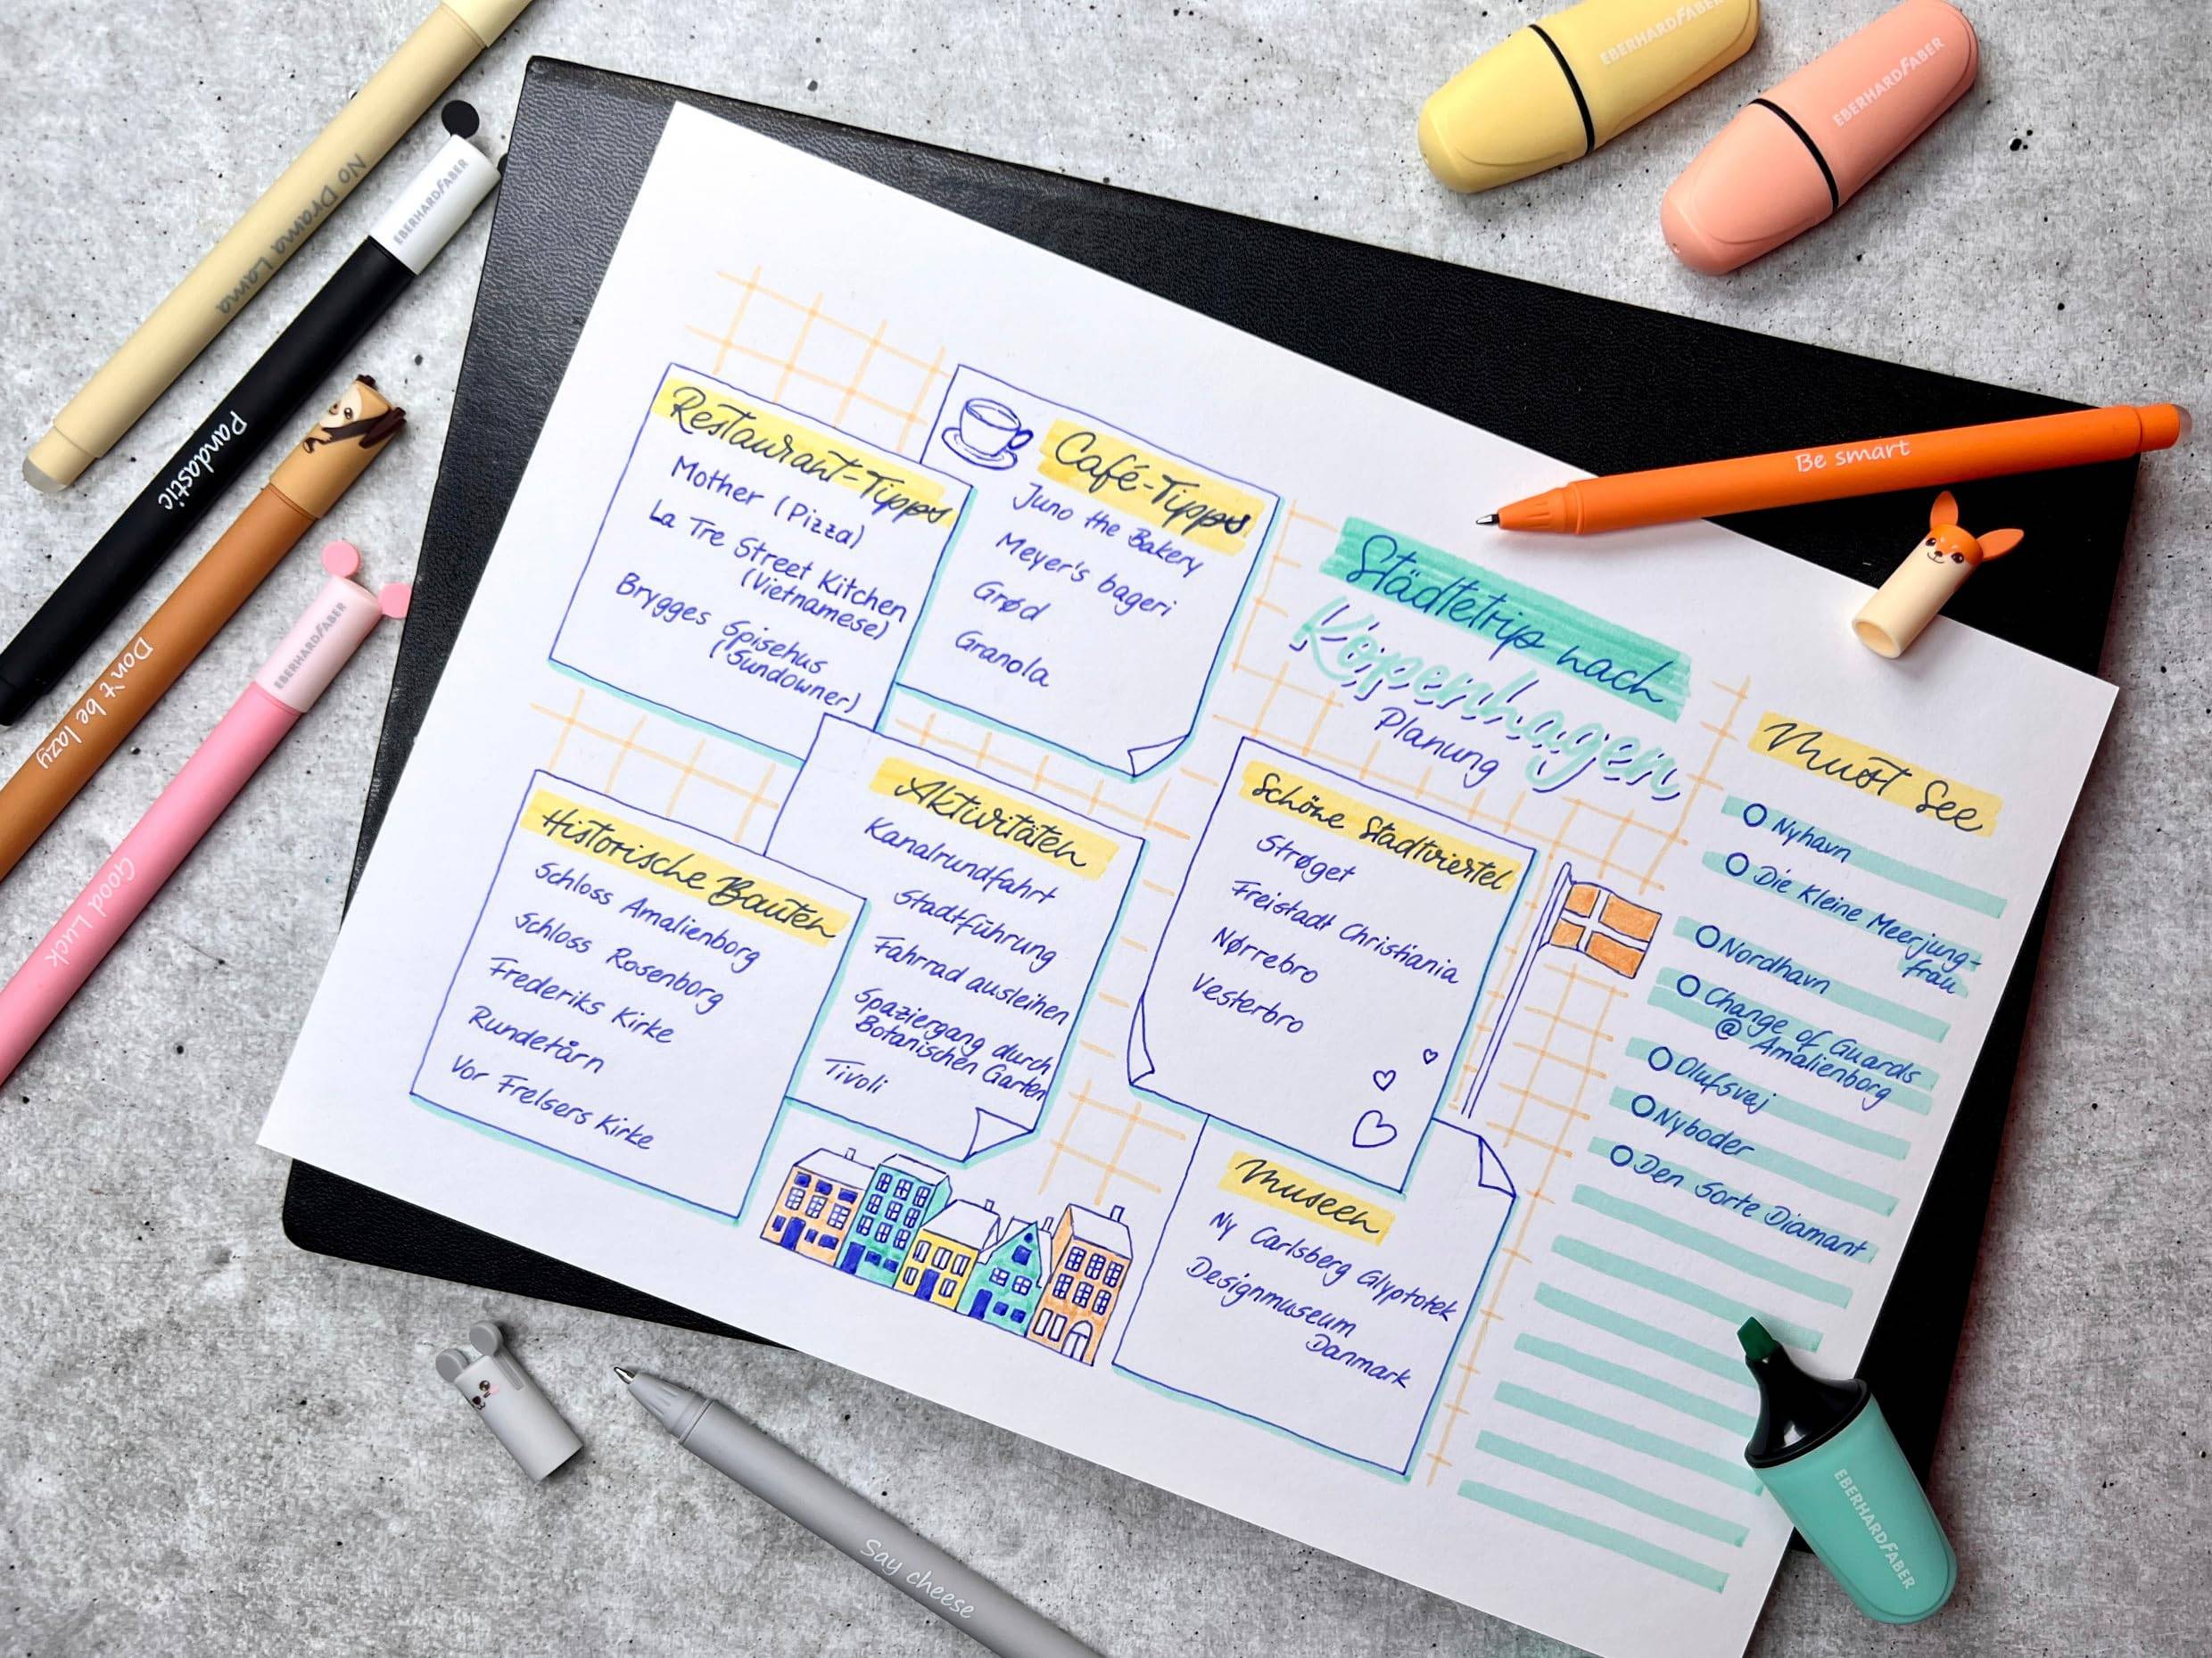 No Drama Lama
EBERHARDFABER
Pandastic
Don't be lazy
EBERHARDFABER
Good Luck
EBERHARDFABER
EBERHARDFABER
Be smart
Restaurant-Tipps
Mother (Pizza)
La Tre Street Kitchen
(Vietnamese)
Brygges Spisehus
(Sundowner)
Café-Tipps
Juno the Bakery
Meyer's bageri
Grød
Granola
Städtetrip nach
Kopenhagen
Planung
Historische Bauten
Schloss Amalienborg
Schloss Rosenborg
Frederiks Kirke
Rundetårn
Vor Frelsers Kirke
Aktivitäten
Kanalrundfahrt
Stadtführung
Fahrrad ausleihen
Spaziergang durch
Botanischen Garten
Tivoli
Schöne Stadtviertel
Strøget
Freistadt Christiania
Nørrebro
Vesterbro
Museen
Ny Carlsberg Glyptotek
Designmuseum
Danmark
Must See
Nyhavn
Die Kleine Meerjung-
frau
Nordhavn
Change of Guards
@ Amalienborg
Olufsvej
Nyboder
Den Sorte Diamant
Say cheese
EBERHARDFABER